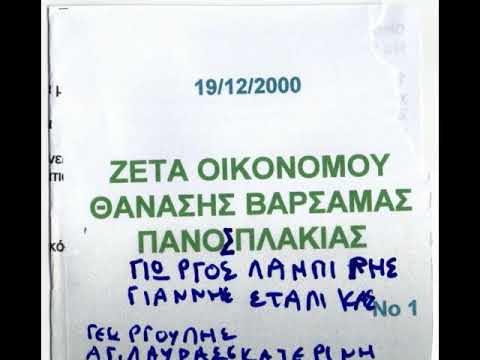 19/12/2000
ΖΕΤΑ ΟΙΚΟΝΟΜΟΥ
ΘΑΝΑΣΗΣ ΒΑΡΣΑΜΑΣ
ΠΑΝΟΣ ΠΛΑΚΙΑΣ
ΓΙΩΡΓΟΣ ΛΑΜΠΙΡΗΣ
ΓΙΑΝΝΗΣ ΣΤΑΛΙΚΑΣ
No 1
ΓΕΩΡΓΟΥΛΗΣ
ΑΓ. ΛΑΥΡΑΣ ΚΑΤΕΡΙΝΗ